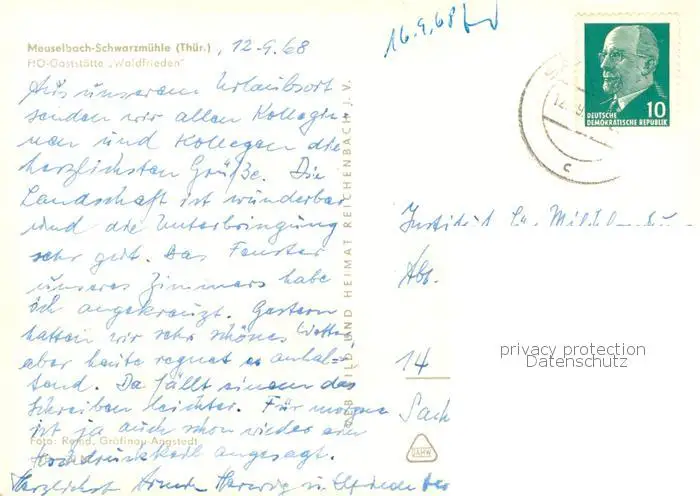 Meuselbach-Schwarzmühle (Thür.) , 12.9.68
HO-Gaststätte „Waldfrieden"
Aus unserem Urlaubsort
senden wir allen Kollegin-
nen und Kollegen die
herzlichsten Grüße. Die
Landschaft ist wunderbar
und die Unterbringung
sehr gut. Das Fenster
unseres Zimmers habe
ich angekreuzt. Gestern
hatten wir sehr schönes Wetter
aber heute regnet es anhal-
tend. Da fällt einem das
Schreiben leichter. Für morgen
ist ja auch schon wieder ein
Hochdruckkeil angesagt.
Herzlichst
Foto: Remd, Gräfinau-Angstedt
BILD UND HEIMAT REICHENBACH i. V.
16.9.68
10
DEUTSCHE
DEMOKRATISCHE REPUBLIK
c
Institut für
Abt.
14
privacy protection
Datenschutz